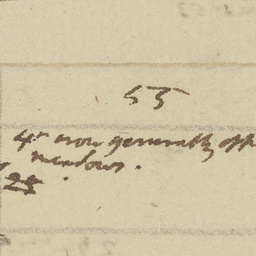 55
4th now generally off
meadows.
25